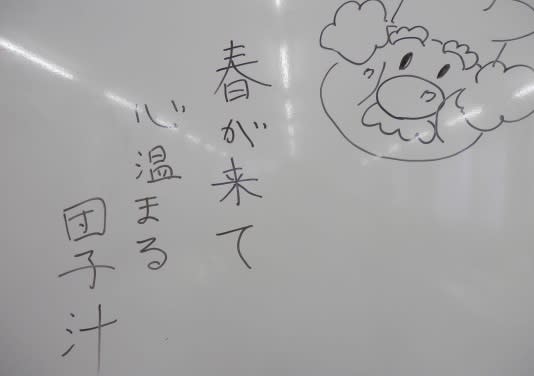 春が来て
心温まる
団子汁